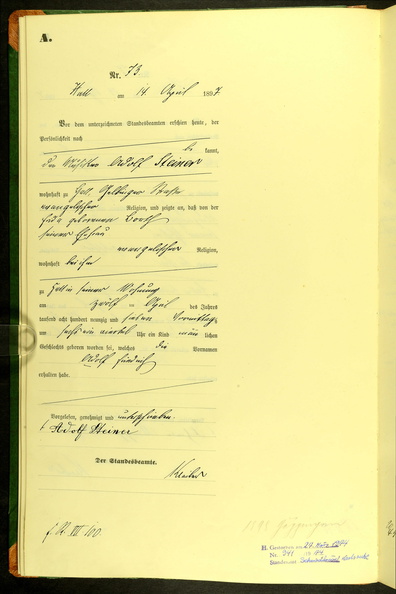 A.
Nr. 73
Hall am 14. April 1897
Vor dem unterzeichneten Standesbeamten erschien heute, der
Persönlichkeit nach
be kannt,
der Adolf Steiner
wohnhaft zu Hall, Gelbinger Gasse
evangelischer Religion, und zeigte an, daß von der
geborenen
seiner Ehefrau
evangelischer Religion,
wohnhaft bei ihm
zu Hall in seiner Wohnung
am zwölften April des Jahres
tausend acht hundert neunzig und sieben Vormittags
um sechs ein viertel Uhr ein Kind männ lichen
Geschlechts geboren worden sei, welches die Vornamen
Adolf Friedrich
erhalten habe.
Vorgelesen, genehmigt und unterschrieben.
Adolf Steiner
Der Standesbeamte.
VII 100
H. Gestorben am 29. 1944
Nr. 341
Standesamt